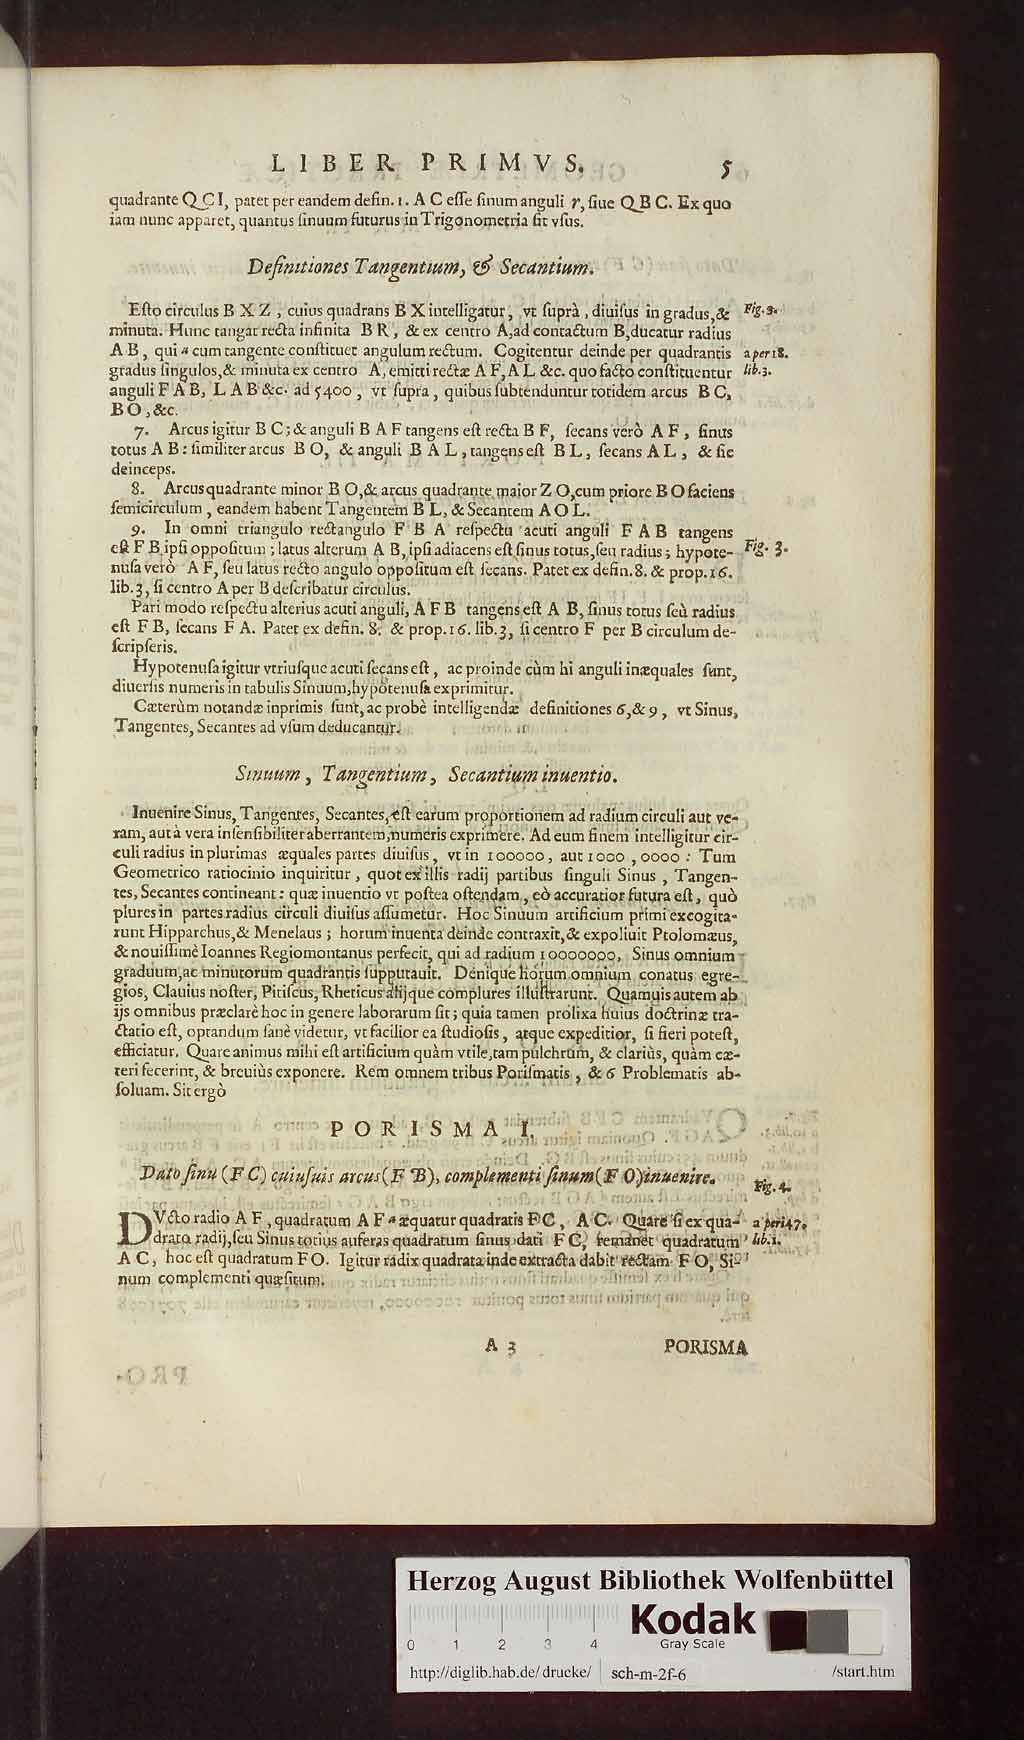 LIBER PRIMVS. 5
quadrante QCI, patet per eandem defin. 1. A C eſſe ſinum anguli r, ſiue QBC. Ex quo
iam nunc apparet, quantus ſinuum futurus in Trigonometria ſit vſus.
Definitiones Tangentium, & Secantium.
Eſto circulus B X Z, cuius quadrans B X intelligatur, vt ſuprà, diuiſus in gradus, & Fig. 3.
minuta. Hunc tangat recta infinita BR, & ex centro A, ad contactum B, ducatur radius
A B, qui a cum tangente conſtituet angulum rectum. Cogitentur deinde per quadrantis a per 18.
gradus ſingulos, & minuta ex centro A, emitti rectæ A F, A L &c. quo facto conſtituentur lib. 3.
anguli F A B, L A B &c. ad 5400, vt ſupra, quibus ſubtenduntur totidem arcus B C,
B O, &c.
7. Arcus igitur B C; & anguli B A F tangens eſt recta B F, ſecans verò A F, ſinus
totus A B: ſimiliter arcus B O, & anguli B A L, tangens eſt B L, ſecans A L, & ſic
deinceps.
8. Arcus quadrante minor B O, & arcus quadrante maior Z O, cum priore B O faciens
ſemicirculum, eandem habent Tangentem B L, & Secantem A O L.
9. In omni triangulo rectangulo F B A reſpectu acuti anguli F A B tangens
eſt F B ipſi oppoſitum; latus alterum A B, ipſi adiacens eſt ſinus totus, ſeu radius; hypote- Fig. 3.
nuſa verò A F, ſeu latus recto angulo oppoſitum eſt ſecans. Patet ex defin. 8. & prop. 16.
lib. 3, ſi centro A per B deſcribatur circulus.
Pari modo reſpectu alterius acuti anguli, A F B tangens eſt A B, ſinus totus ſeù radius
eſt F B, ſecans F A. Patet ex defin. 8. & prop. 16. lib. 3, ſi centro F per B circulum de-
ſcripſeris.
Hypotenuſa igitur vtriuſque acuti ſecans eſt, ac proinde cùm hi anguli inæquales ſunt,
diuerſis numeris in tabulis Sinuum, hypotenuſa exprimitur.
Cæterùm notandæ inprimis ſunt, ac probè intelligendæ definitiones 6, & 9, vt Sinus,
Tangentes, Secantes ad vſum deducantur.
Sinuum, Tangentium, Secantium inuentio.
Inuenire Sinus, Tangentes, Secantes, eſt earum proportionem ad radium circuli aut ve-
ram, aut à vera inſenſibiliter aberrantem, numeris exprimere. Ad eum finem intelligitur cir-
culi radius in plurimas æquales partes diuiſus, vt in 100000, aut 1000,0000: Tum
Geometrico ratiocinio inquiritur, quot ex illis radij partibus ſinguli Sinus, Tangen-
tes, Secantes contineant: quæ inuentio vt poſtea oſtendam, eò accuratior futura eſt, quò
plures in partes radius circuli diuiſus aſſumetur. Hoc Sinuum artificium primi excogita-
runt Hipparchus, & Menelaus; horum inuenta deinde contraxit, & expoliuit Ptolomæus,
& nouiſſimè Ioannes Regiomontanus perfecit, qui ad radium 10000000, Sinus omnium
graduum, ac minutorum quadrantis ſupputauit. Denique horum omnium conatus egre-
gios, Clauius noſter, Pitiſcus, Rheticus alijque complures illuſtrarunt. Quamuis autem ab
ijs omnibus præclarè hoc in genere laboratum ſit; quia tamen prolixa huius doctrinæ tra-
ctatio eſt, optandum ſanè videtur, vt facilior ea ſtudioſis, atque expeditior, ſi fieri poteſt,
efficiatur. Quare animus mihi eſt artificium quàm vtile, tam pulchrum, & clariùs, quàm cæ-
teri fecerint, & breuiùs exponere. Rem omnem tribus Poriſmatis, & 6 Problematis ab-
ſoluam. Sit ergò
PORISMA I.
Dato ſinu (F C) cuiuſuis arcus (F B), complementi ſinum (F O) inuenire. Fig. 4.
DVcto radio A F, quadratum A F a æquatur quadratis F C, A C. Quare ſi ex qua- a per 147.
drato radij, ſeu Sinus totius auferas quadratum ſinus dati F C, remanet quadratum lib. 1.
A C, hoc eſt quadratum F O. Igitur radix quadrata inde extracta dabit rectam F O, Si-
num complementi quæſitum.
A 3 PORISMA
Herzog August Bibliothek Wolfenbüttel
0 1 2 3 4 Kodak
Gray Scale
http://diglib.hab.de/drucke/ sch-m-2f-6 /start.htm